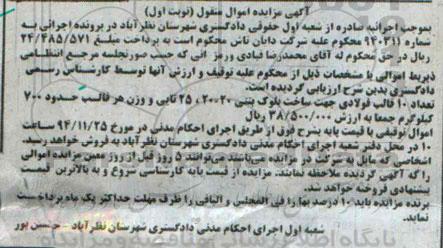 آگهی مزایده اموال منقول (نوبت اول)
بموجب اجرائیه صادره از شعبه اول حقوقی دادگستری شهرستان نظرآباد در پرونده اجرائی به
شماره ۹۴۰۳۱۱ محکوم علیه شرکت دایان تاش محکوم است به پرداخت مبلغ ۲۴/۴۸۵/۵۷۱
ریال در حق محکوم له آقای محمدرضا قبادی ورمز اتی که حسب صورتجلسه مرجع انتظامی
ذیربط اموالی با مشخصات ذیل از محکوم علیه توقیف و ارزش آنها توسط کارشناس رسمی
دادگستری بدین شرح ارزیابی گردیده است.
تعداد ۱۰ قالب فولادی جهت ساخت بلوک بتنی ۲۰×۲۰، ۲۵ تایی و وزن هر قالب حدود ۷۰۰
کیلوگرم جمعا به ارزش ۳۸/۵۰۰/۰۰۰ ریال
اموال توقیفی با قیمت پایه بشرح فوق از طریق اجرای احکام مدنی در مورخ ۹۴/۱۱/۲۵ ساعت
۱۰ در محل دفتر شعبه اجرای احکام مدنی دادگستری شهرستان نظرآباد به فروش خواهد رسید.
اشخاصی که مایل به شرکت در مزایده میباشند می‌توانند ۵ روز قبل از روز معین مزایده اموالی
را که آگهی گردیده ملاحظه نمایند. مزایده از قیمت پایه کارشناسی شروع و به بالاترین قیمت
پیشنهادی فروخته خواهد شد.
برنده مزایده باید ۱۰ درصد بها را فی المجلس و الباقی را ظرف مهلت حداکثر یک ماه پرداخت
نماید.
شعبه اول اجرای احکام مدنی دادگستری شهرستان نظرآباد - حسین پور
پایگاه اطلاع رسانی مناقصه و مزایده